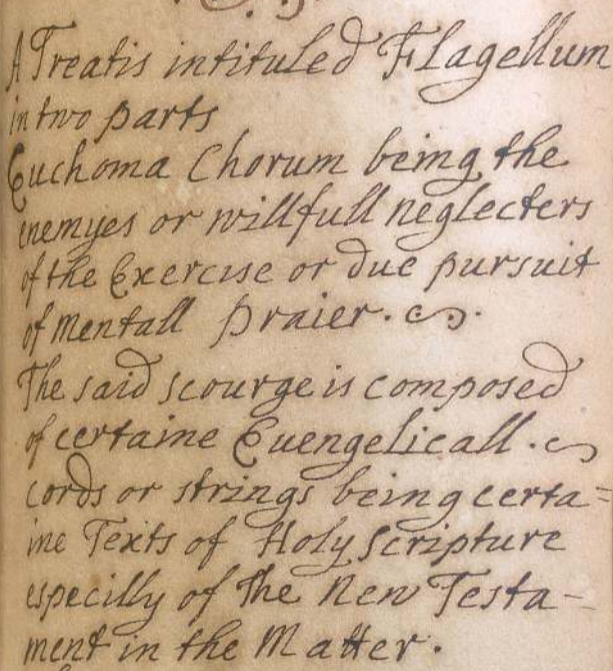 A Treatis intituled Flagellum
in two parts
Euchoma Chorum being the
enemyes or willfull neglecters
of the Exercise or due pursuit
of Mentall Praier.
The said scourge is composed
of certaine Euengelicall.
cords or strings being certa=
ine Texts of Holy Scripture
especilly of The New Testa-
ment in the Matter.